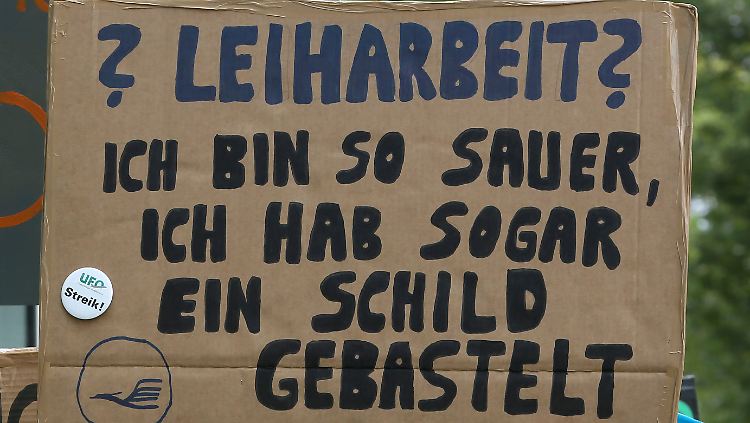 ? LEIHARBEIT?
ICH BIN SO SAUER,
ICH HAB SOGAR
EIN SCHILD
GEBASTELT
UFO
Streik!